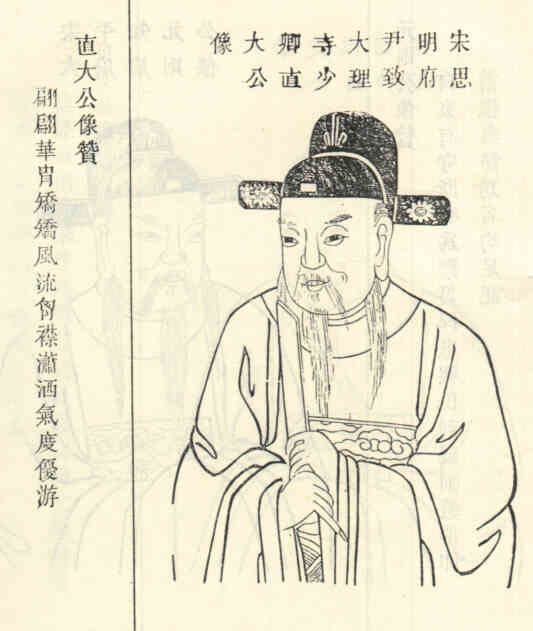 宋思
明府
尹致
大理
寺少
卿直
大公
像
直大公像贊
翩翩華胄矯矯風流胷襟瀟洒氣度優游